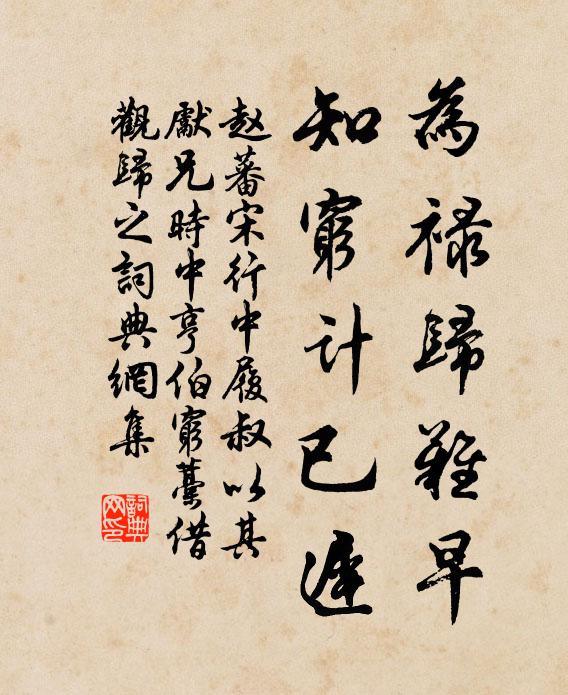 為祿歸難早
知窮計已遲
赵蕃宋行中履叔以其
獻兄時中亨伯窮藁借
觀歸之詞典網集
詞典网印